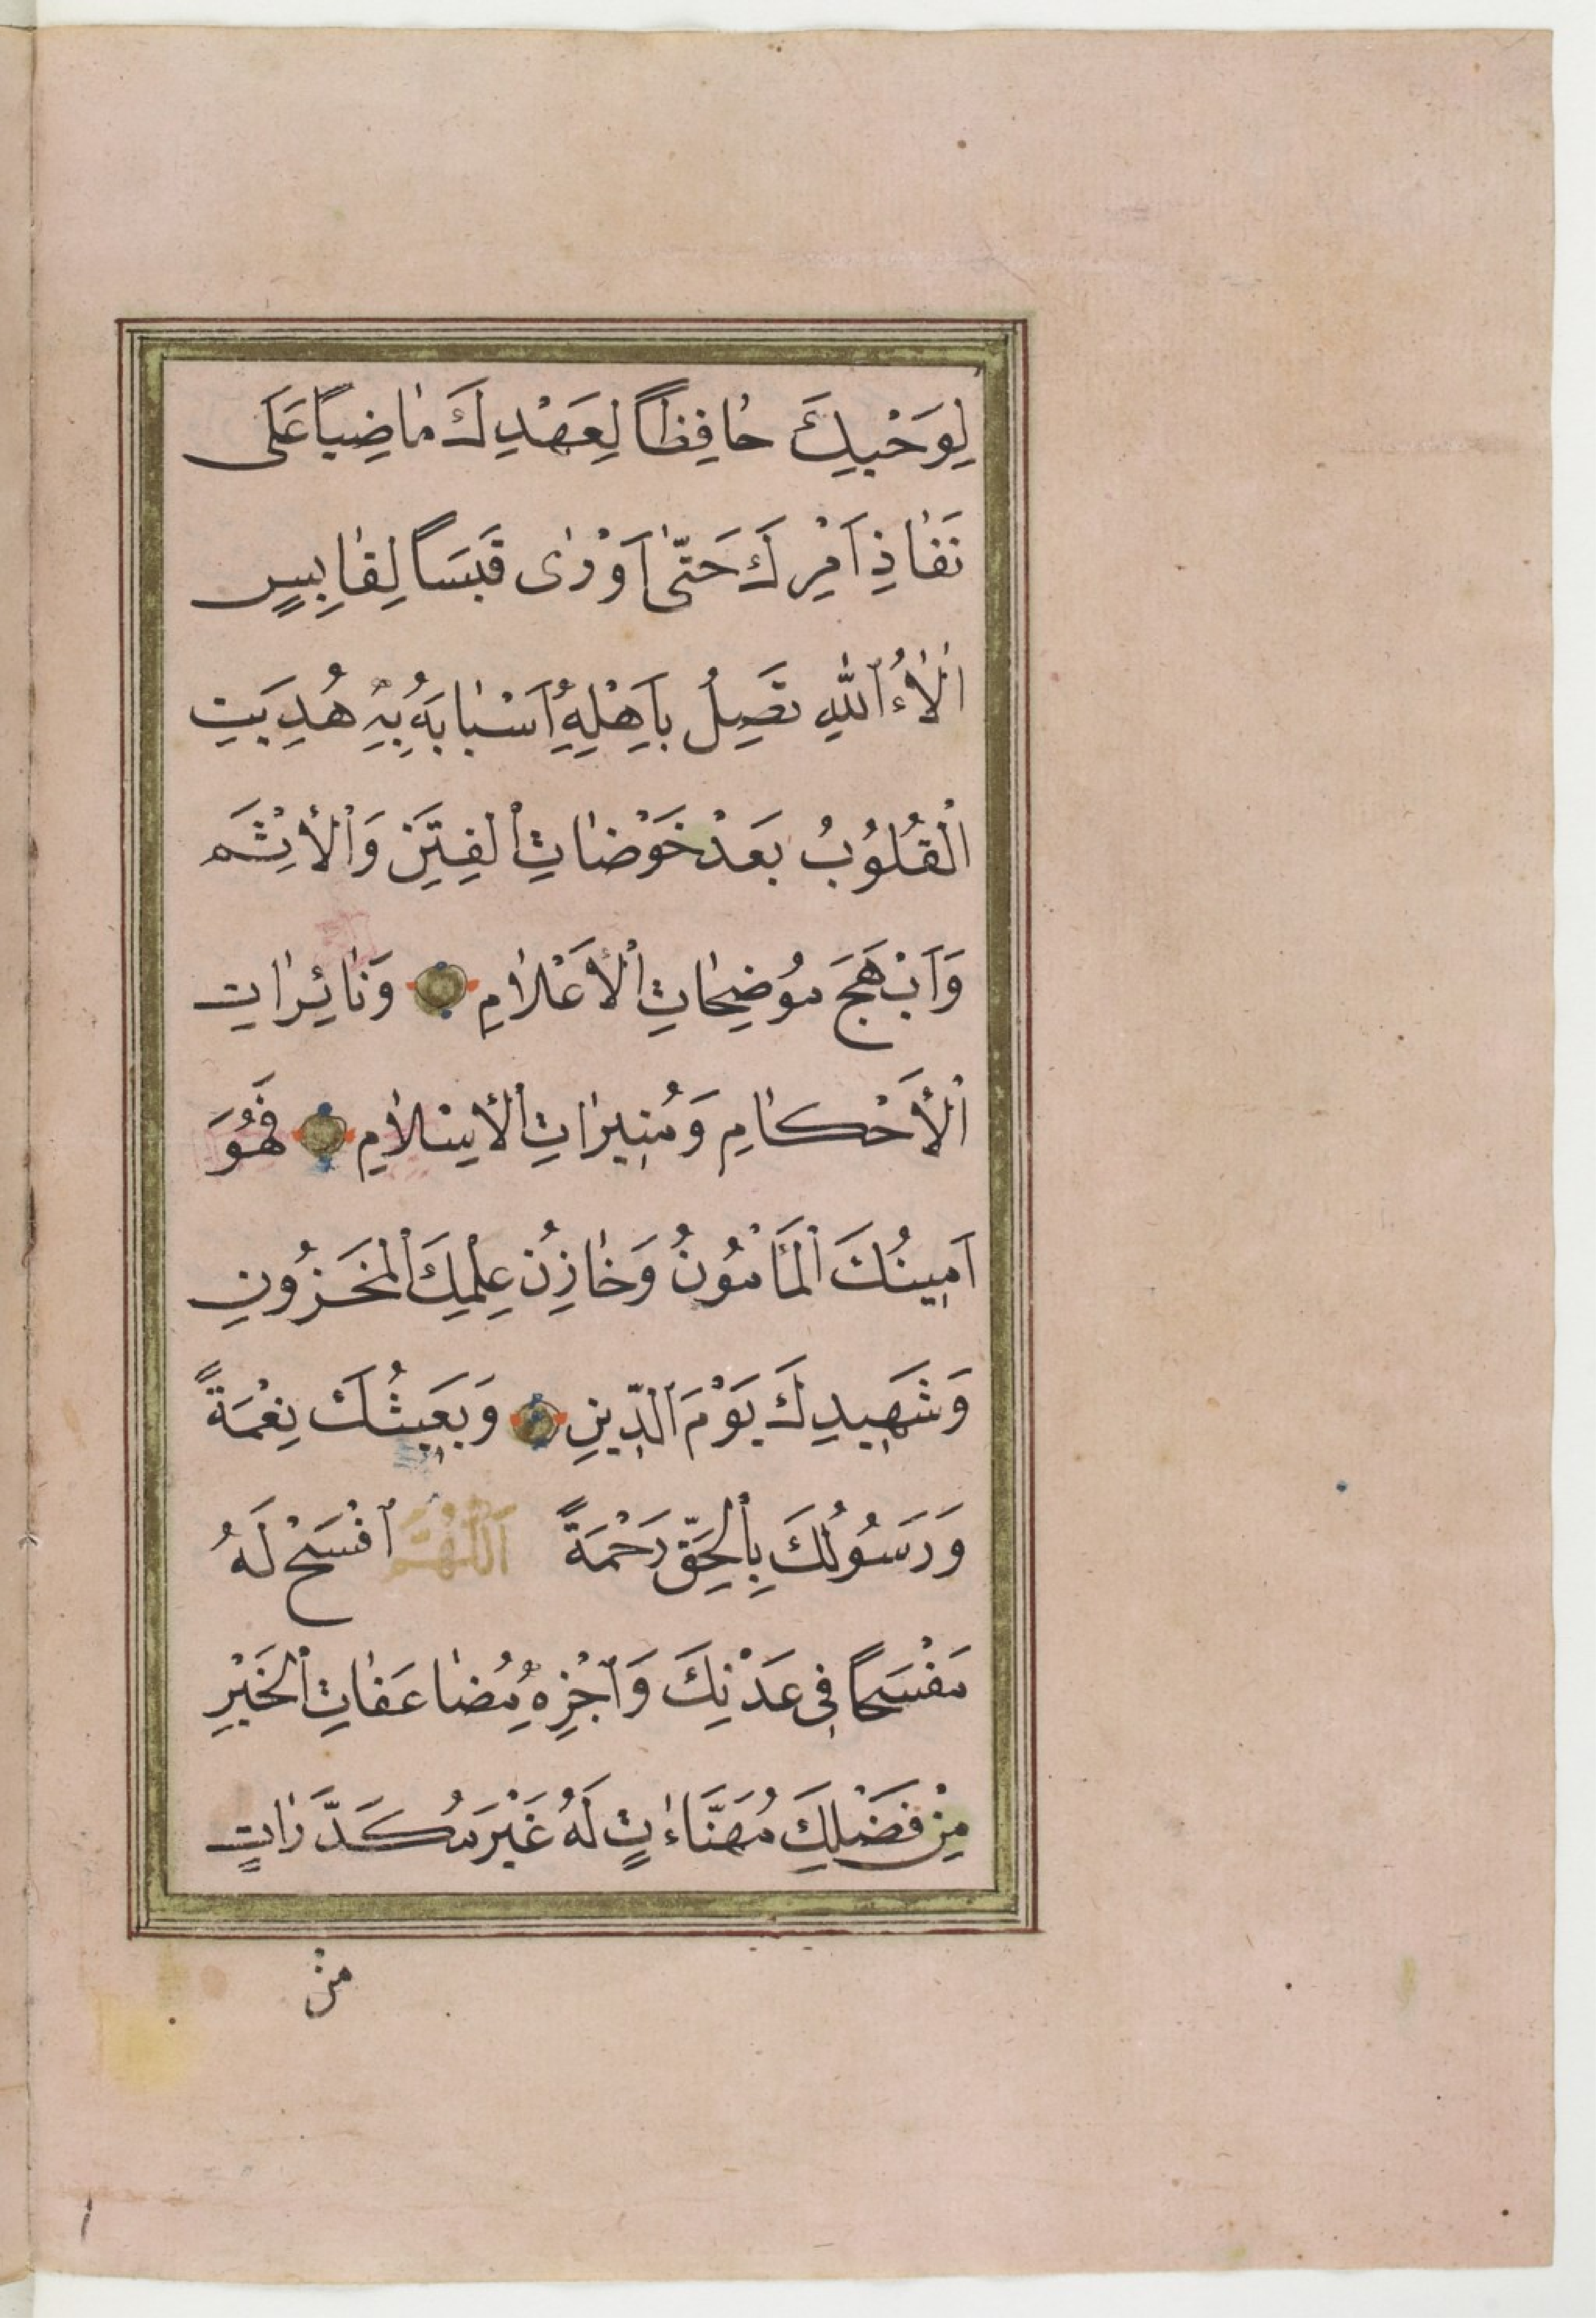 لِوَحْيِكَ حٰافِظاً لِعَهْدِكَ مٰاضِياً عَلَى
نَفٰاذِ اَمْرِكَ حَتّٰى اَوْرٰى قَبَسًا لِقٰابِسٍ
اٰلٰاءُ ٱللّٰهِ تَصِلُ بِاَهْلِهِ اَسْبٰابَهُ بِهِ هُدِيَتِ
الْقُلُوبُ بَعْدَ خَوْضٰاتِ ٱلْفِتَنِ وَٱلْاِثْمِ
وَاَبْهَجَ مُوضِحٰاتِ ٱلْاَعْلٰامِ وَنٰائِرٰاتِ
ٱلْاَحْكٰامِ وَمُنِيرٰاتِ ٱلْاِسْلٰامِ فَهُوَ
اَمِينُكَ ٱلْمَأْمُونُ وَخٰازِنُ عِلْمِكَ ٱلْمَخْزُونِ
وَشَهِيدُكَ يَوْمَ ٱلدِّينِ وَبَعِيثُكَ نِعْمَةً
وَرَسُولُكَ بِٱلْحَقِّ رَحْمَةً اَللّٰهُمَّ ٱفْسَحْ لَهُ
مَفْسَحًا فِى عَدْنِكَ وَٱجْزِهِ مُضٰاعَفٰاتِ ٱلْخَيْرِ
مِنْ فَضْلِكَ مُهَنَّاٰتٍ لَهُ غَيْرَ مُكَدَّرٰاتٍ
مِنْ